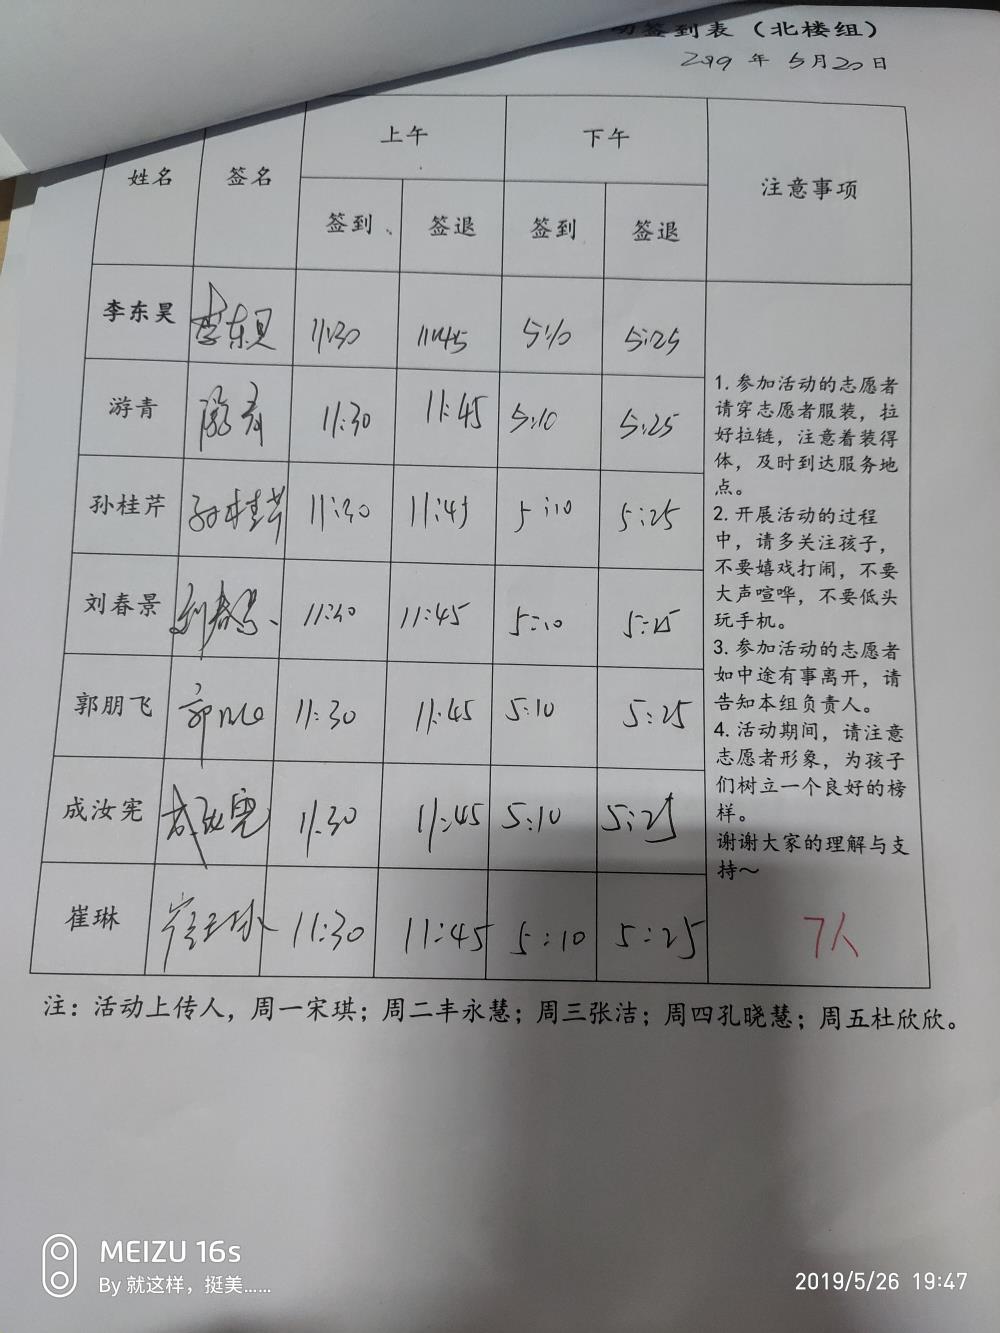 签到表（北楼组）
2019 年 5月20日
姓名 签名 上午 下午 注意事项
签到 签退 签到 签退
李东昊 李东昊 11:30 11:45 5:10 5:25
游青 游青 11:30 11:45 5:10 5:25
孙桂芹 孙桂芹 11:30 11:45 5:10 5:25
刘春景 刘春景 11:30 11:45 5:10 5:25
郭朋飞 郭 11:30 11:45 5:10 5:25
成汝宪 成汝宪 11:30 11:45 5:10 5:25
崔琳 崔琳 11:30 11:45 5:10 5:25
1. 参加活动的志愿者
请穿志愿者服装，拉
好拉链，注意着装得
体，及时到达服务地
点。
2. 开展活动的过程
中，请多关注孩子，
不要嬉戏打闹，不要
大声喧哗，不要低头
玩手机。
3. 参加活动的志愿者
如中途有事离开，请
告知本组负责人。
4. 活动期间，请注意
志愿者形象，为孩子
们树立一个良好的榜
样。
谢谢大家的理解与支
持～
7人
注：活动上传人，周一宋琪；周二丰永慧；周三张洁；周四孔晓慧；周五杜欣欣。
MEIZU 16s
By 就这样，挺美……
2019/5/26 19:47